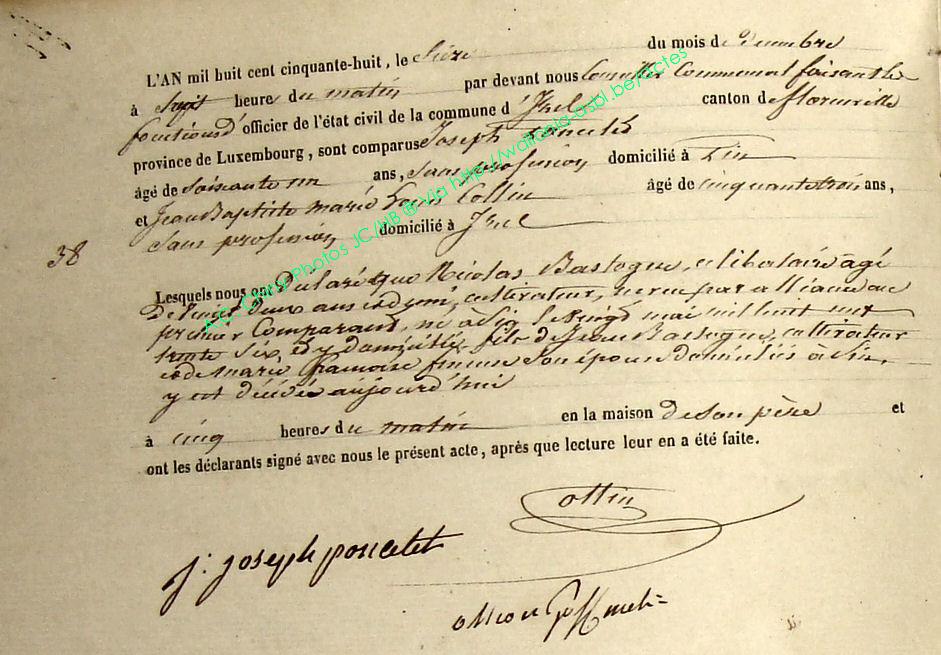 L'AN mil huit cent cinquante-huit, le Seize du mois de Decembre
à Sept heures du matin par devant nous Conseiller Communal faisant les
fonctions d'officier de l'état civil de la commune d'Izel canton de florenville
province de Luxembourg, sont comparus Joseph Poncelet
âgé de Soixante un ans, Sans profession domicilié à Sin
et Jean Baptiste marie Louis Collin âgé de cinquante trois ans,
Sans profession domicilié à Izel
38
Lesquels nous ont Déclaré que Nicolas Bastogne, célibataire âgé
De Vingt Deux ans et demi, cultivateur, neveu par alliance au
premier Comparant, né à Sin le Vingt mai mil huit cent
trente Six, et y domicilié, fils de Jean Bastogne, cultivateur
et de marie françoise Son épouse Domiciliés à Sin,
y est décédé aujourd'hui
à cinq heures du matin en la maison de Son père et
ont les déclarants signé avec nous le présent acte, après que lecture leur en a été faite.
Collin
J: Joseph poncelet